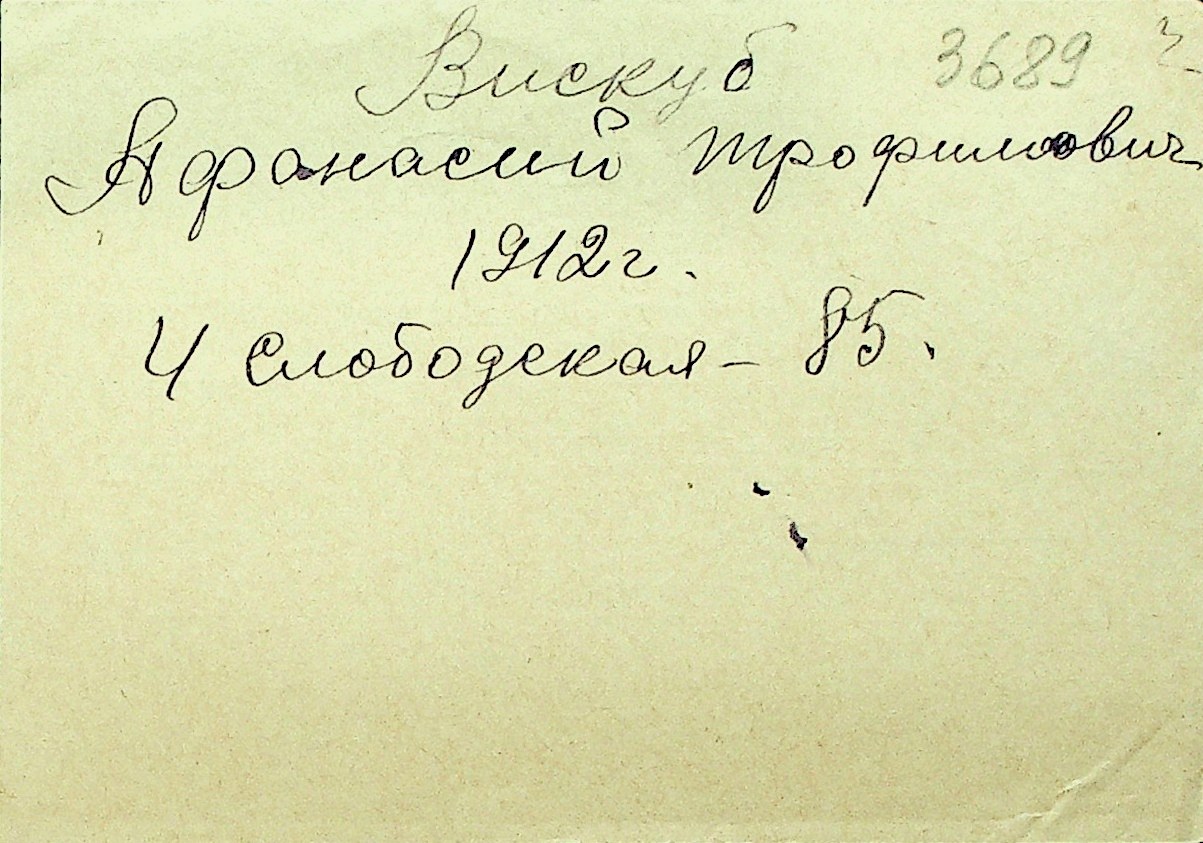 Вискуб 3689
Афанасий Трофимович
1912г.
4 Слободская - 85.